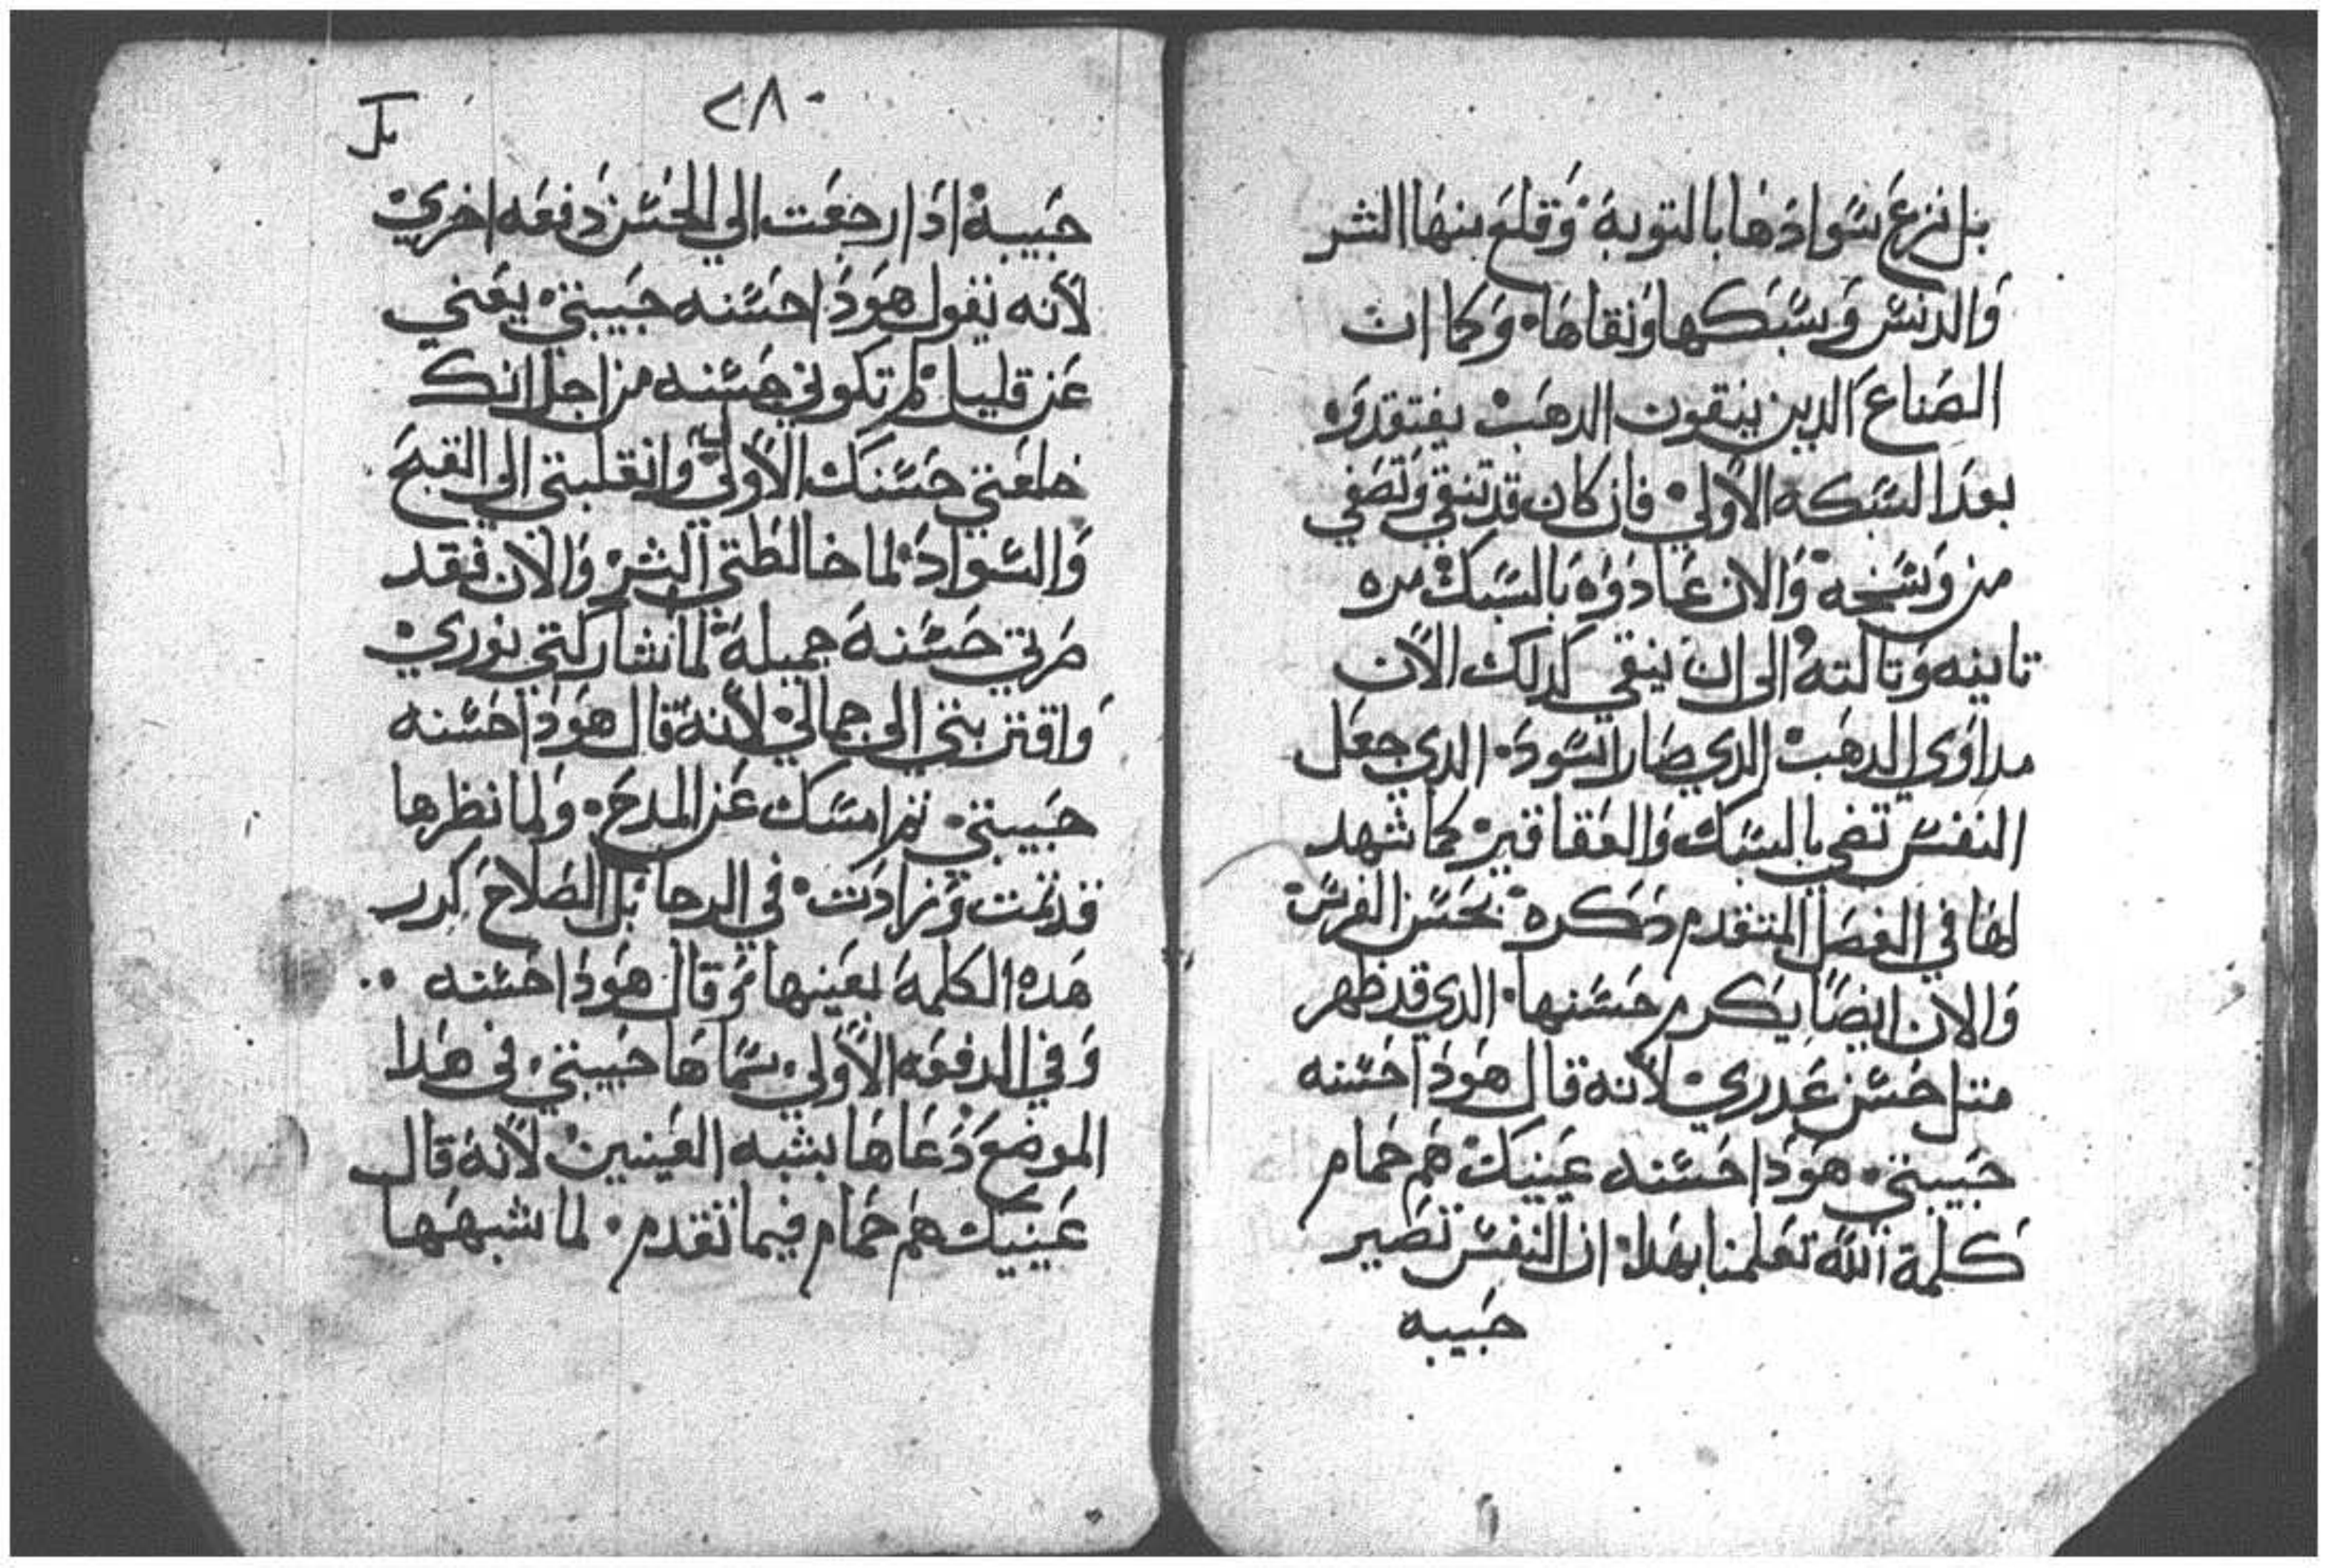 بل نزع سوادها بالتوبة وقلع منها الشر
والدنس وسبكها ونقاها وكما ان
الصناع الدين ينقون الدهب يفتقدوه
بعد السبكه الاولي فان كان قد تنقي وتصفي
من وسخه والان عادوه بالسبك مره
تانيه وتالته الى ان ينقي كدلك الآن
مداوي الدهب الدي صار اسود الدي جعل
النفس تضي بالسبك والعقاقير كما شهد
لها في الفصل المتقدم دكره بحسن الفرس
والان ايضا يكرم حسنها الدي قد ظهر
متل حسن عدري لأنه قال هودا حسنه
حبيبتي هودا حسنه عينيك هم حمام
كلمة الله تعلمنا بهدا ان النفس تصير
حبيبه
٢٨
حبيبة ادا رجعت الي الحسن دفعه اخري
لأنه يقول هودا حسنه حبيبتي يعني
عن قليل لم تكوني حسنه من اجل انك
خلعتي حسنك الأولي وانقلبتي الى القبح
والسواد لما خالطتي الشر والآن فقد
صرتي حسنة جميلة لما شاركتي نوري
واقتربتي الى جمالي لأنه قال هودا حسنه
حبيبتي ثم امسك عن المدح ولما نظرها
قد نمت وزادت في الرجا بل الصلاح كرر
هده الكلمة بعينها وقال هودا حسنه
وفي الدفعه الأولي سماها حبيبتي في هدا
الموضع دعاها بشبه العينين لأنه قال
عينيك هم حمام فيما تقدم لما شبهها